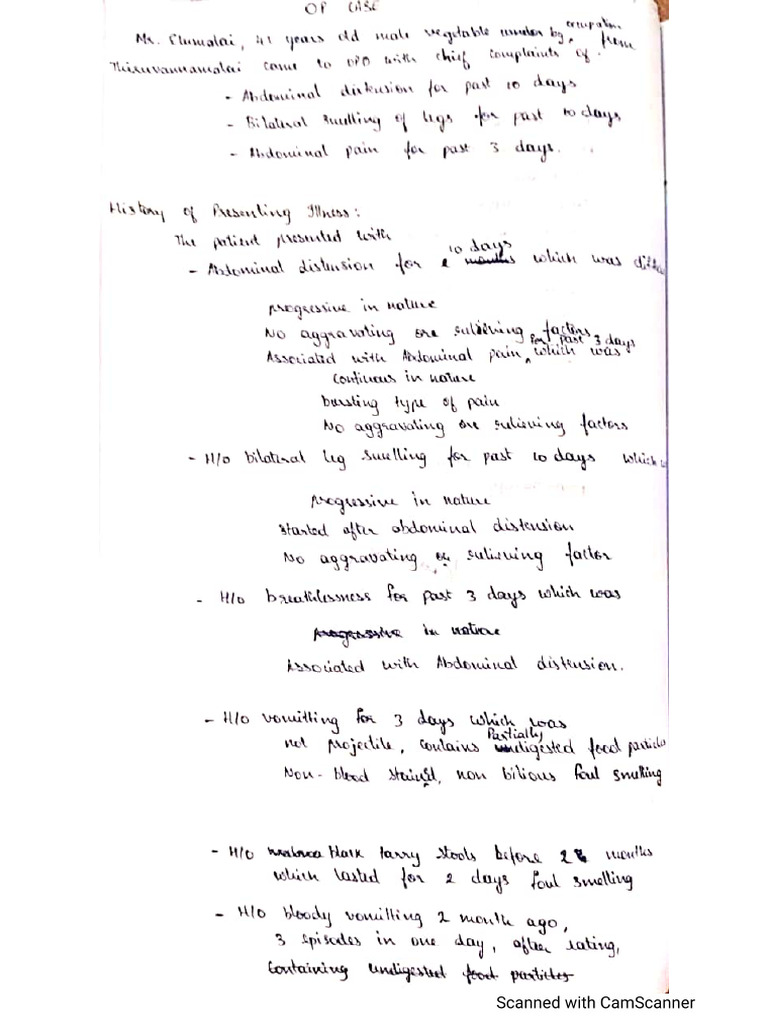 OP CASE
Mr. Elumalai, 41 years old male vegetable vendor by occupation from
Thiruvannamalai came to OPD with chief complaints of.
- Abdominal distension for past 10 days
- Bilateral swelling of legs for past 10 days
- Abdominal pain for past 3 days.
History of Presenting Illness:
The patient presented with
- Abdominal distension for 10 days which was
progressive in nature
No aggravating or relieving factors
Associated with Abdominal pain for past 3 days, which was
continuous in nature
bursting type of pain
No aggravating or relieving factors
- H/o bilateral leg swelling for past 10 days which
progressive in nature
started after abdominal distension
No aggravating or relieving factor
- H/o breathlessness for past 3 days which was
progressive in nature
Associated with Abdominal distension.
- H/o vomitting for 3 days which was
not projectile, contains Partially digested food particles
Non-blood stained, non bilious foul smelling
- H/o black tarry stools before 2 months
which lasted for 2 days foul smelling
- H/o bloody vomitting 2 month ago,
3 episodes in one day, after eating,
containing undigested food particles
Scanned with CamScanner